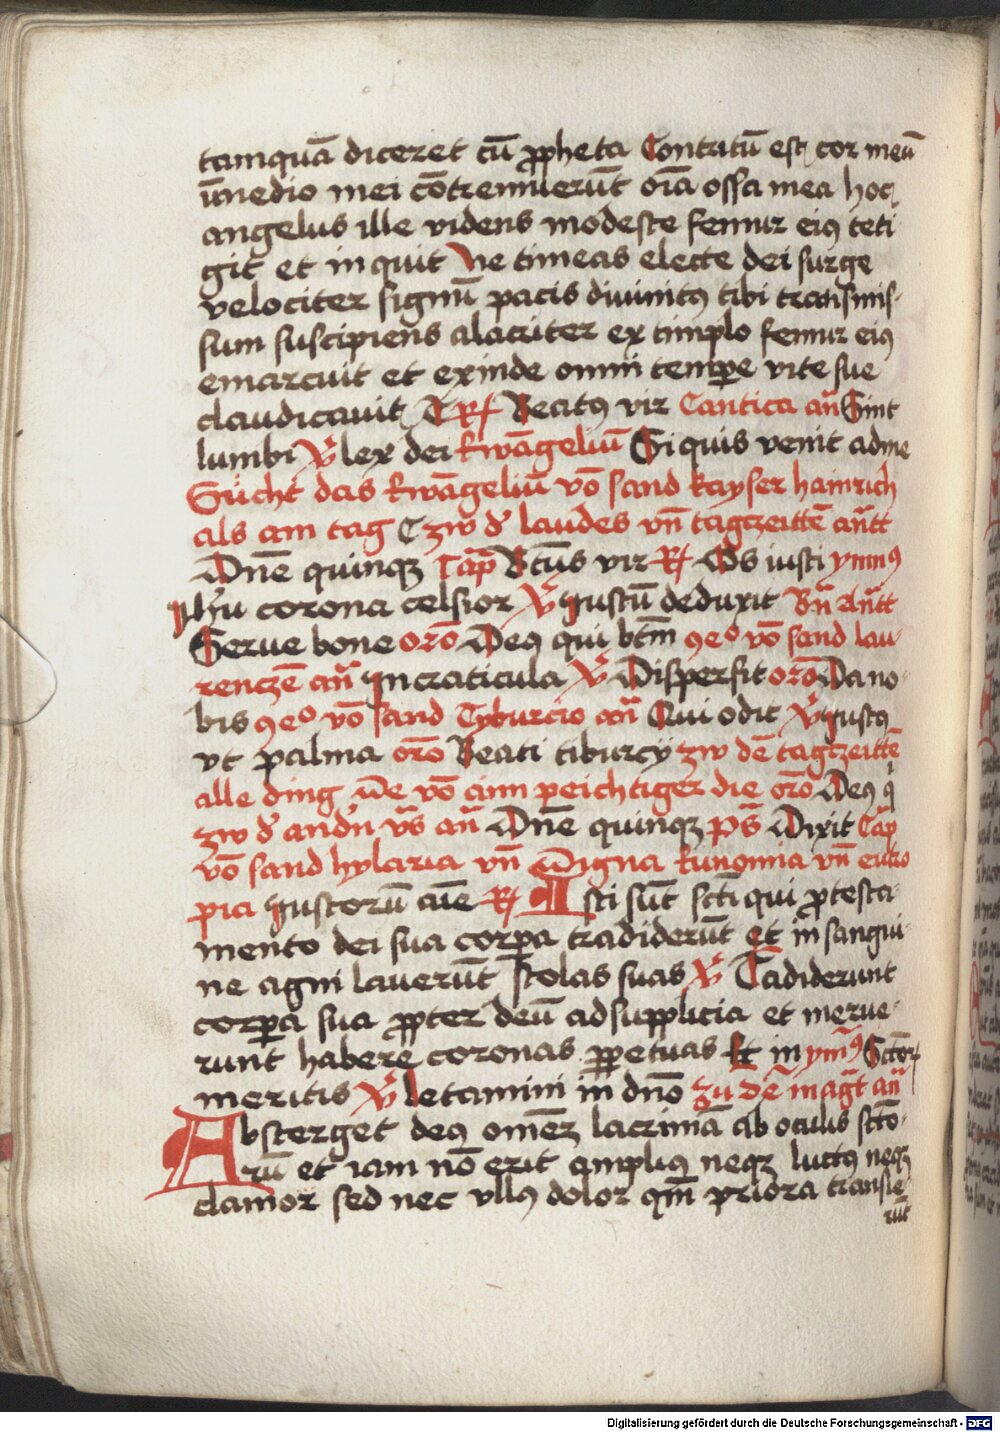 tamquā diceret cū ꝓpheta Contritū est cor meū
ī medio mei cōtremuerūt oīa ossa mea hoc
angelus ille videns modeste femur eiꝰ teti
git et inquit Ne timeas electe dei surge
velociter signū pacis diuinitꝰ tibi transmis-
sum suscipiens alacriter ex timplo femur eiꝰ
emarcuit et exinde omni tempore vite sue
claudicauit Beatꝰ vir Cantica an̄ Sint
lumbi V̄ lex dei Ewāgeliū Si quis venit ad me
Sücht das Ewāgeliū vō sand kayser hainrich
als am tag Czw d' laudes vn̄ tagtzeittē an̄tt
Dn̄e quinqꝫ Cap̄ Btūs vir R̄ Os iusti ymnꝰ
Ihū corona celsior V̄ Iustū deduxit Bn̄ an̄tt
Serue bone orō Deꝰ qui btm̄ ꝯeo vō sand lau-
renczē an̄ In craticula V̄ Dispersit orō Da no-
bis ꝯeo vō sand Tyburcio an̄ Qui odit V̄ Iustꝰ
vt palma orō Beati tiburcij zw dē tagtzeittē
alle ding vō aim peichtiger die orō Deꝰ q
zw d' andn̄ vs̄ an̄ Dn̄e quinqꝫ ps̄ Dixit Cap̄
vō sand hylaria vn̄ Digna Eunomia vn̄ eutro
pia Iustorū aīe R̄ Isti sūt scti qui ꝓ testa-
mento dei sua corpa tradiderūt et in sangui-
ne agni lauerūt stolas suas V̄ Tradiderunt
corpa sua ꝓpter deū ad supplicia et merue-
runt habere coronas ꝑpetuas Et in ymꝰ Sctor
meritis V̄ letamini in dn̄o zu dē magt̄ an̄
Absterget deꝰ omēz lacrimā ab oculis sctō-
rū et iam nō erit ampliꝰ neqꝫ luctꝰ neqꝫ
clamor sed nec vllꝰ dolor qm̄ priora transie-
rūt
Digitalisierung gefördert durch die Deutsche Forschungsgemeinschaft - DFG